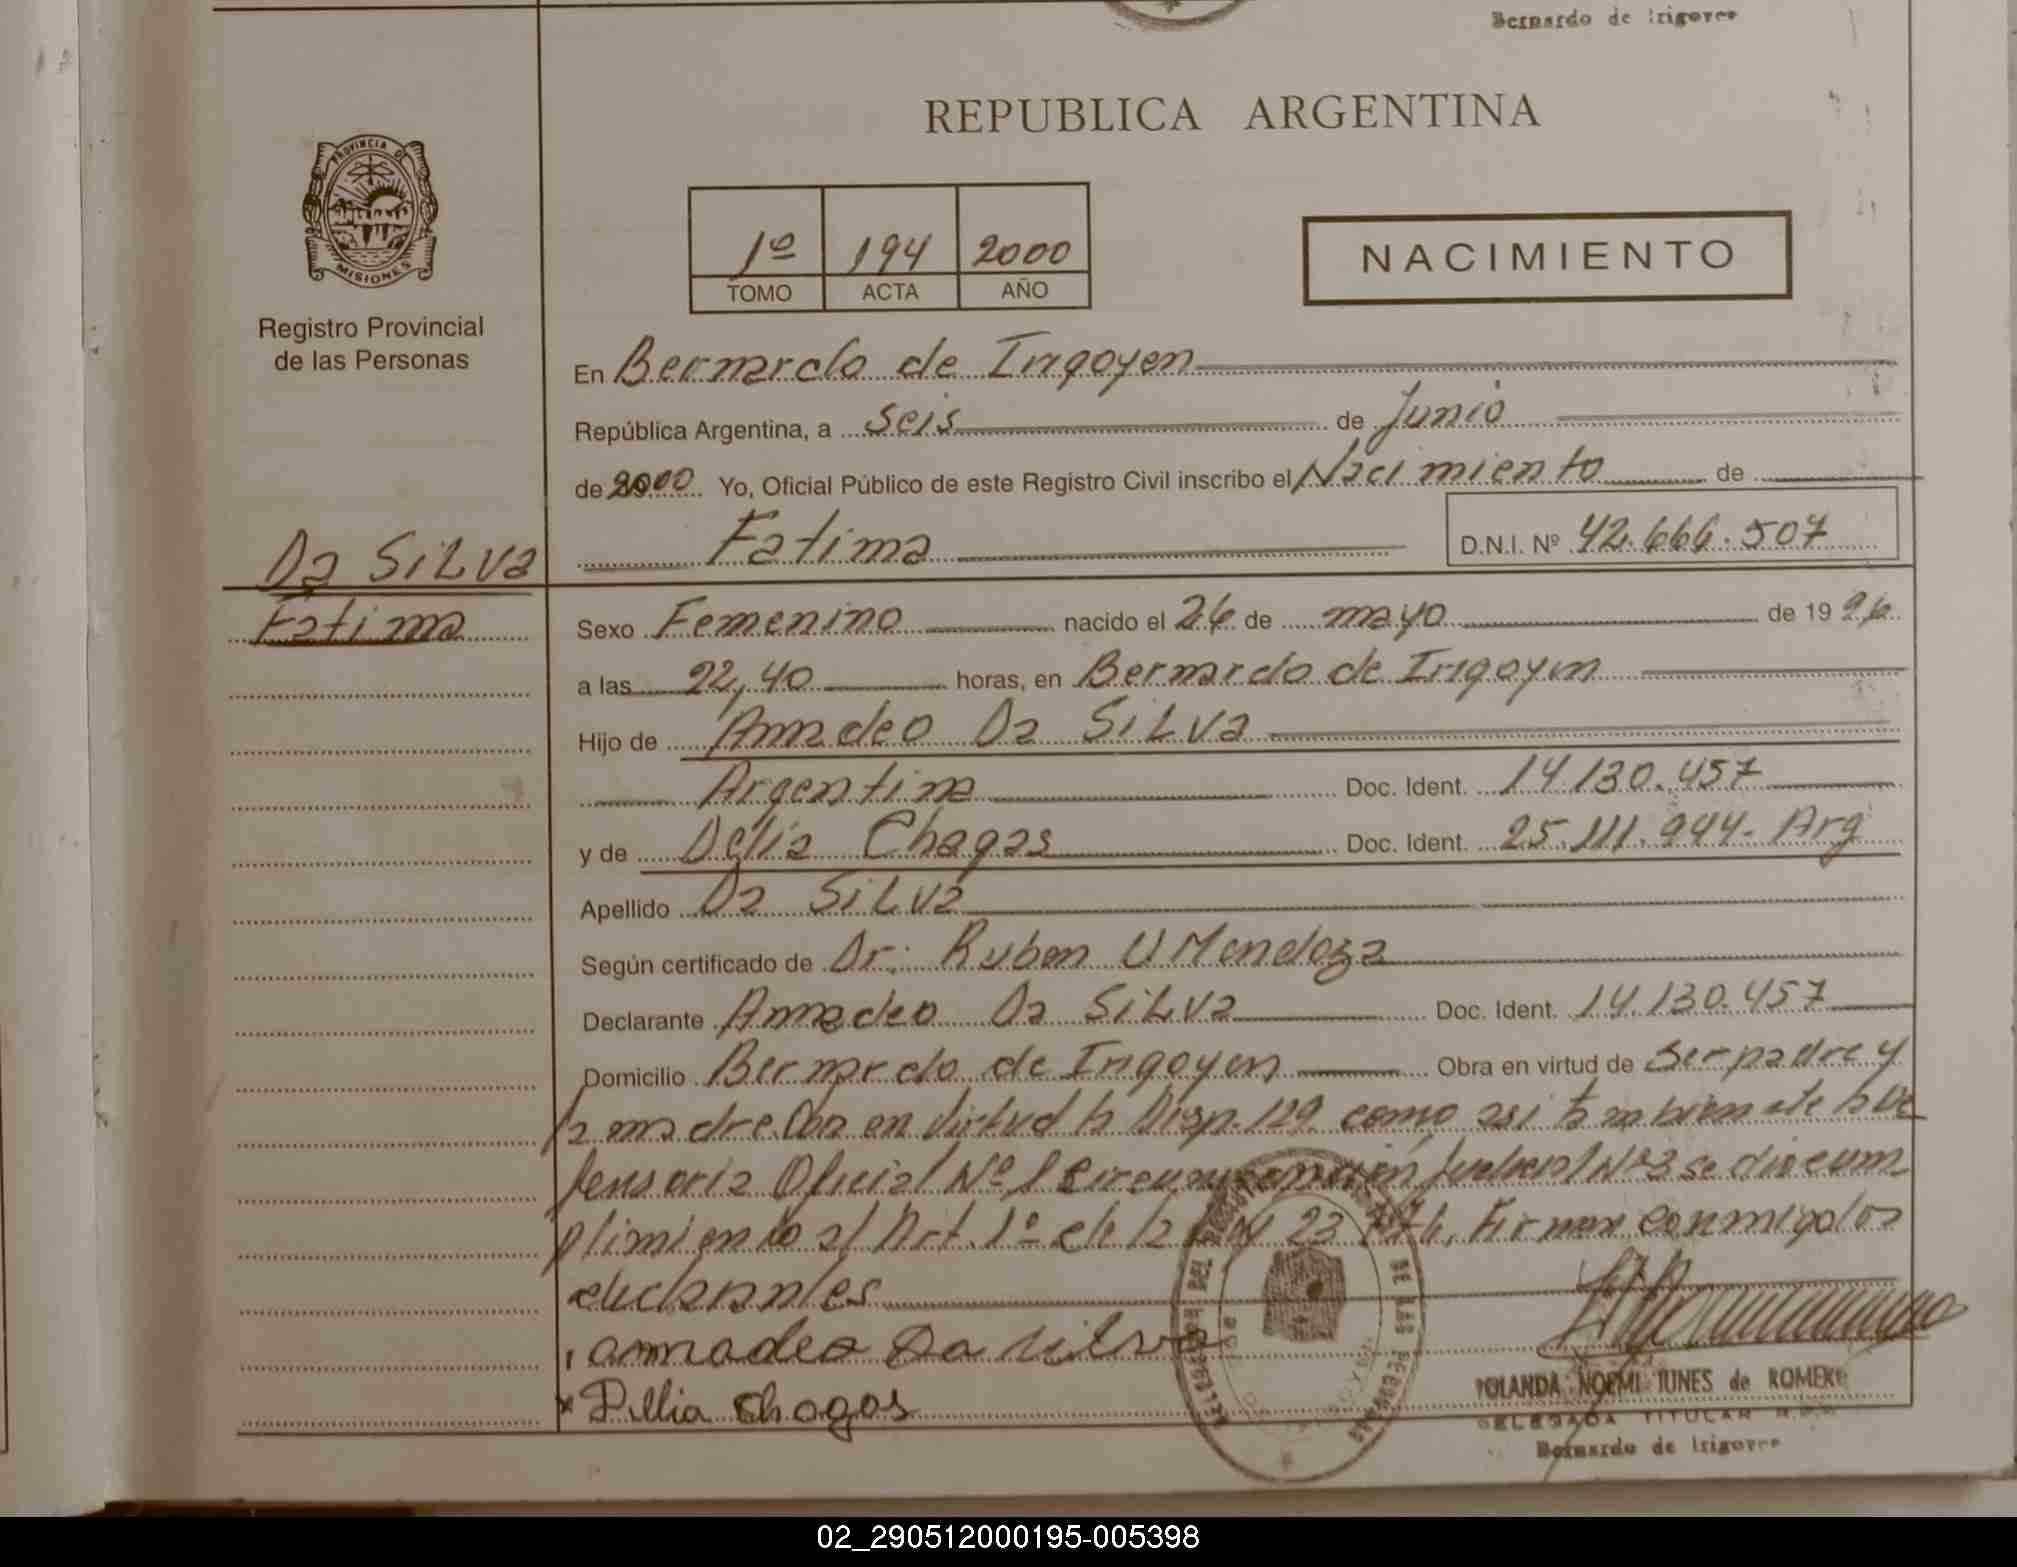 Bernardo de Irigoyen
REPUBLICA ARGENTINA
PROVINCIA DE
MISIONES
Registro Provincial
de las Personas
1º 194 2000
TOMO ACTA AÑO
NACIMIENTO
En Bernardo de Irigoyen
República Argentina, a Seis de Junio
de 2000 Yo, Oficial Público de este Registro Civil inscribo el Nacimiento de
Fatima D.N.I. Nº 42.666.507
Da SiLva
Fatima
Sexo Femenino nacido el 26 de mayo de 19 96
a las 22,40 horas, en Bernardo de Irigoyen
Hijo de Amadeo Da SiLva
Argentina Doc. Ident. 14.130.457
y de Delia Chagas Doc. Ident. 25.111.944- Arg
Apellido Da SiLva
Según certificado de Dr. Ruben U Mendoza
Declarante Amadeo Da SiLva Doc. Ident. 14.130.457
Domicilio Bernardo de Irigoyen Obra en virtud de Ser padre y
la madre. Obra en virtud la Disp. 129 como asi tambien de la De
fensoria Oficial Nº 1 Circunscripcion Judicial Nº 3 se dio cum
plimiento al Art. 1º de la Ley 23 Firman conmigo los
declarantes
amadeo Da silva
x Dellia chagas
YOLANDA NOEMI IUNES de ROMERO
DELEGADA TITULAR
Bernardo de Irigoyen
02_290512000195-005398